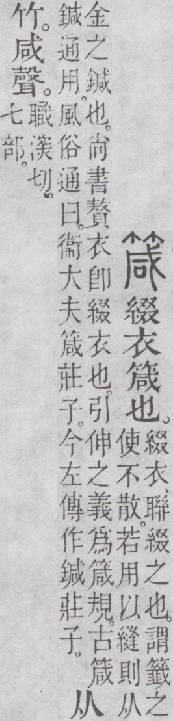 箴綴衣箴也。綴衣聯綴之也。謂籤之使不散。若用以縫則从
金之鍼也。尙書贅衣卽綴衣也。引伸之義爲箴規。古箴鍼通用。風俗通曰。衞大夫箴莊子。今左傳作鍼莊子。从
竹。咸聲。職㴱切。七部。